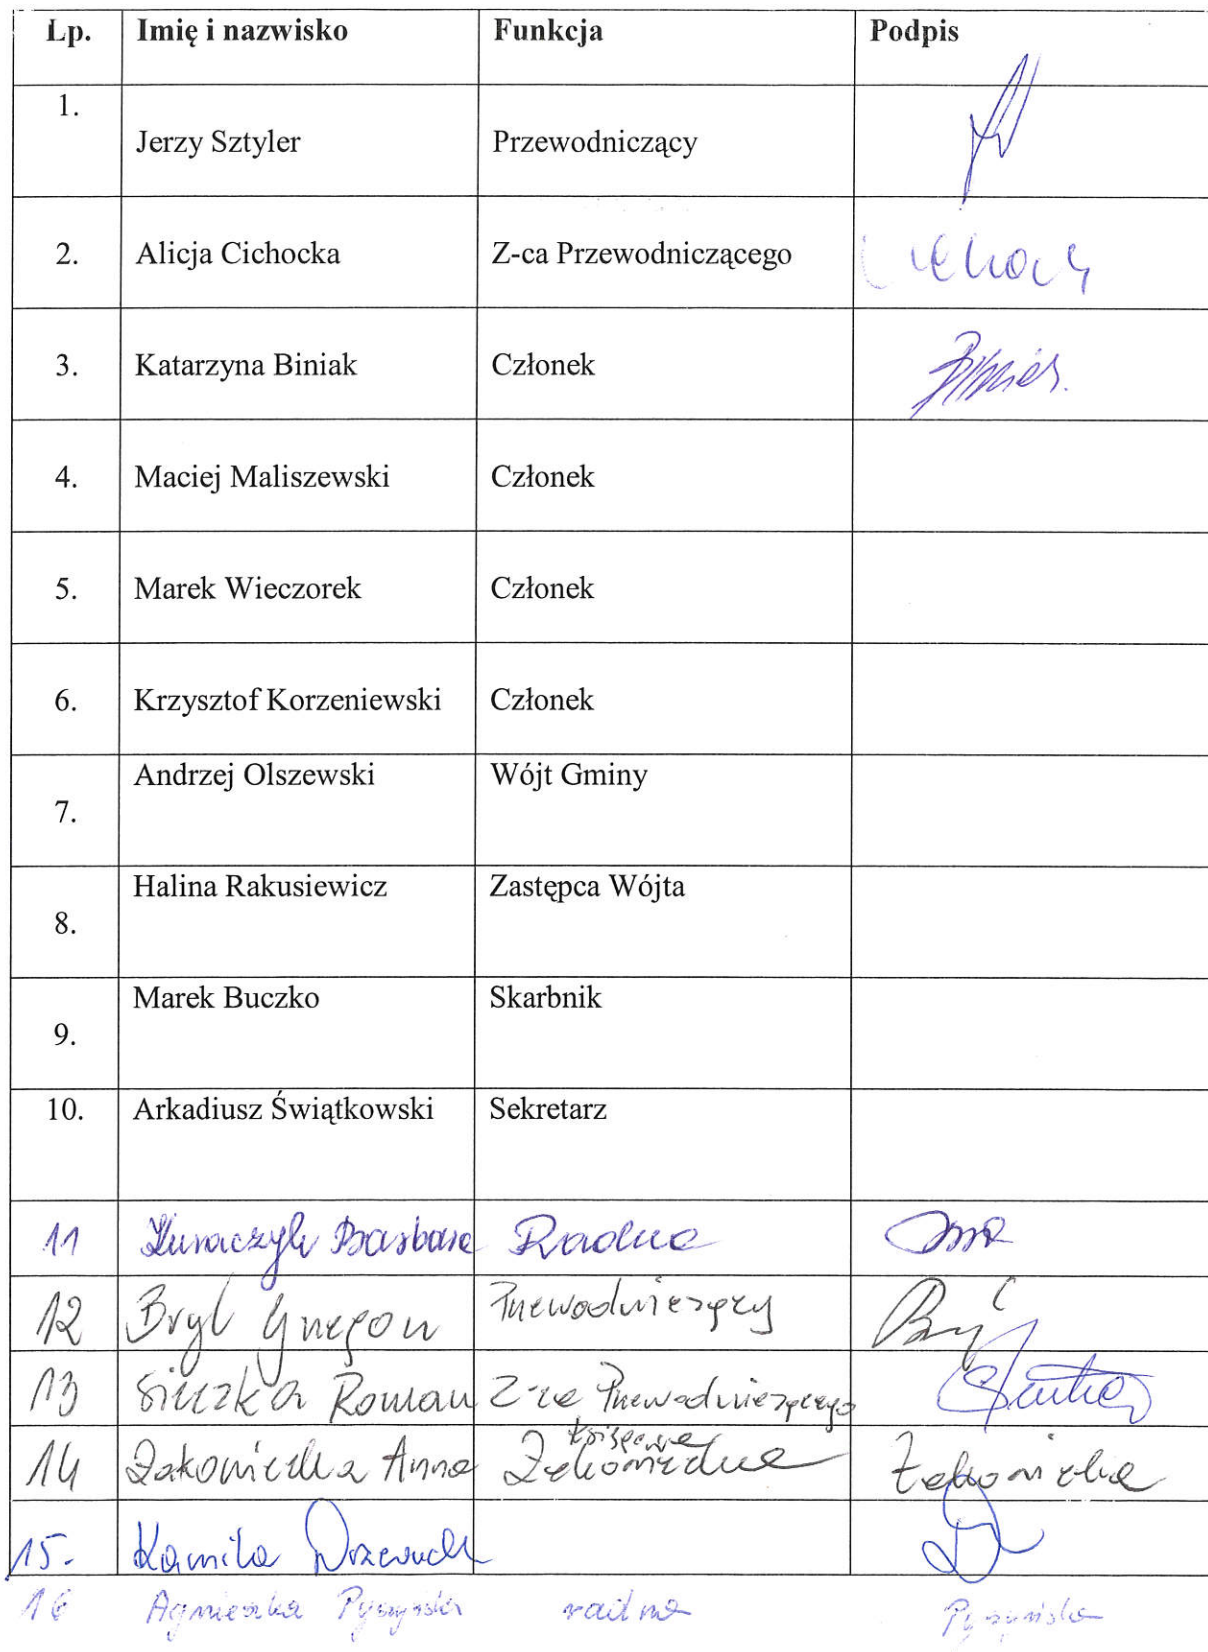 Lp. Imię i nazwisko Funkcja Podpis
1. Jerzy Sztyler Przewodniczący
2. Alicja Cichocka Z-ca Przewodniczącego
3. Katarzyna Biniak Członek
4. Maciej Maliszewski Członek
5. Marek Wieczorek Członek
6. Krzysztof Korzeniewski Członek
7. Andrzej Olszewski Wójt Gminy
8. Halina Rakusiewicz Zastępca Wójta
9. Marek Buczko Skarbnik
10. Arkadiusz Świątkowski Sekretarz
11 Barbara Radna
12 Bryl Grzegorz Przewodniczący
13 Sieczka Roman Z-ca Przewodniczącego
14 Żakowiecka Anna księgowa
15. Kamila
16 Agnieszka Pyszyńska radna Pyszyńska